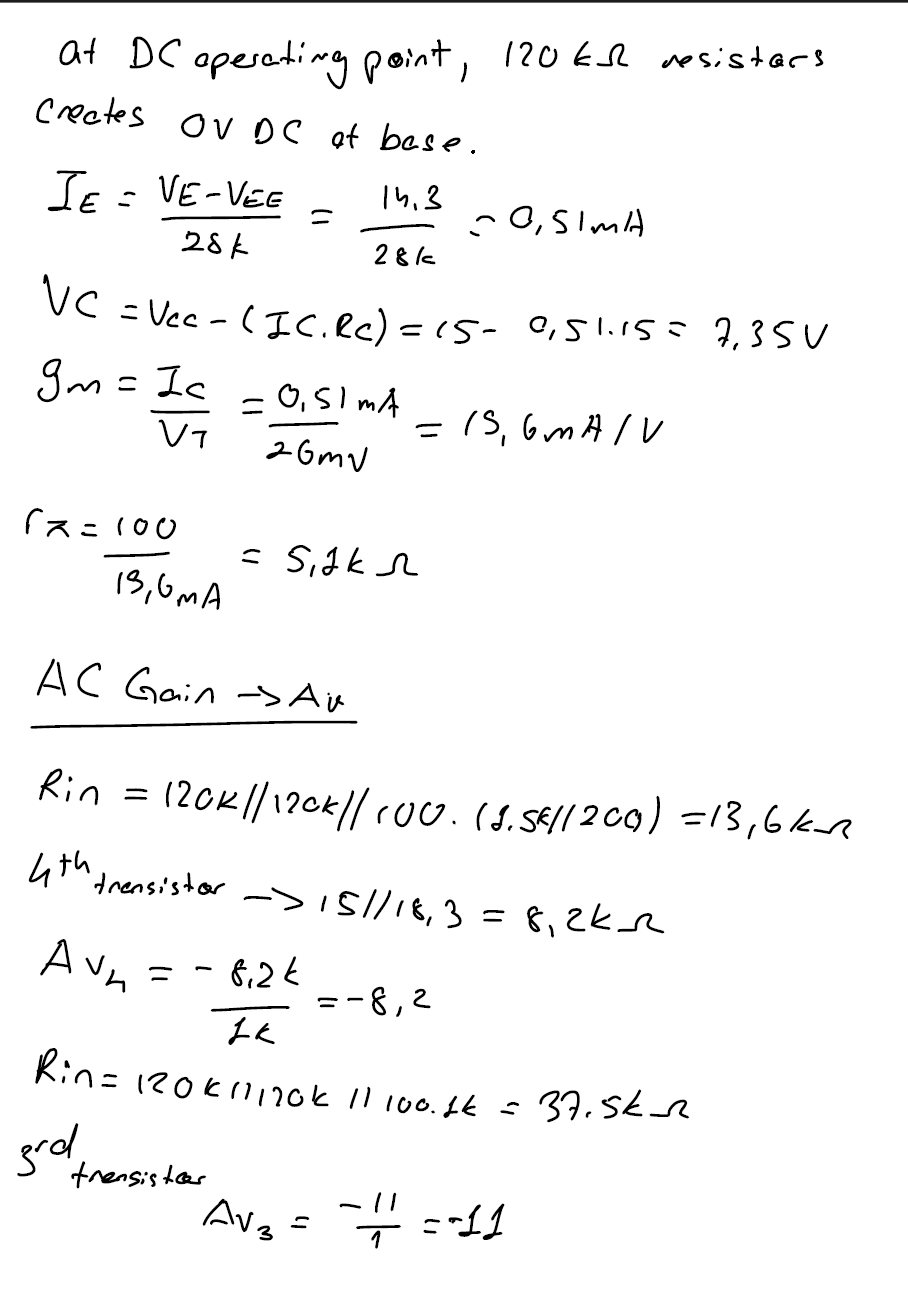 at DC operating point, 120 kΩ resistors
Creates 0V DC at base.
IE = VE-VEE / 28k = 14,3 / 28k = 0,51mA
VC = Vcc - (IC.Rc) = 15 - 0,51.15 = 7,35V
gm = Ic / VT = 0,51 mA / 26mV = 19,6mA/V
rπ = 100 / 19,6mA = 5,1k Ω
AC Gain -> Av
Rin = 120K//120k//100.(1.5k//200) = 13,6kΩ
4th transistor -> 15//18,3 = 8,2kΩ
Av4 = - 8,2k / 1k = -8,2
Rin = 120k//120k // 100.1k = 37.5kΩ
3rd transistor
Av3 = -11 / 1 = -11